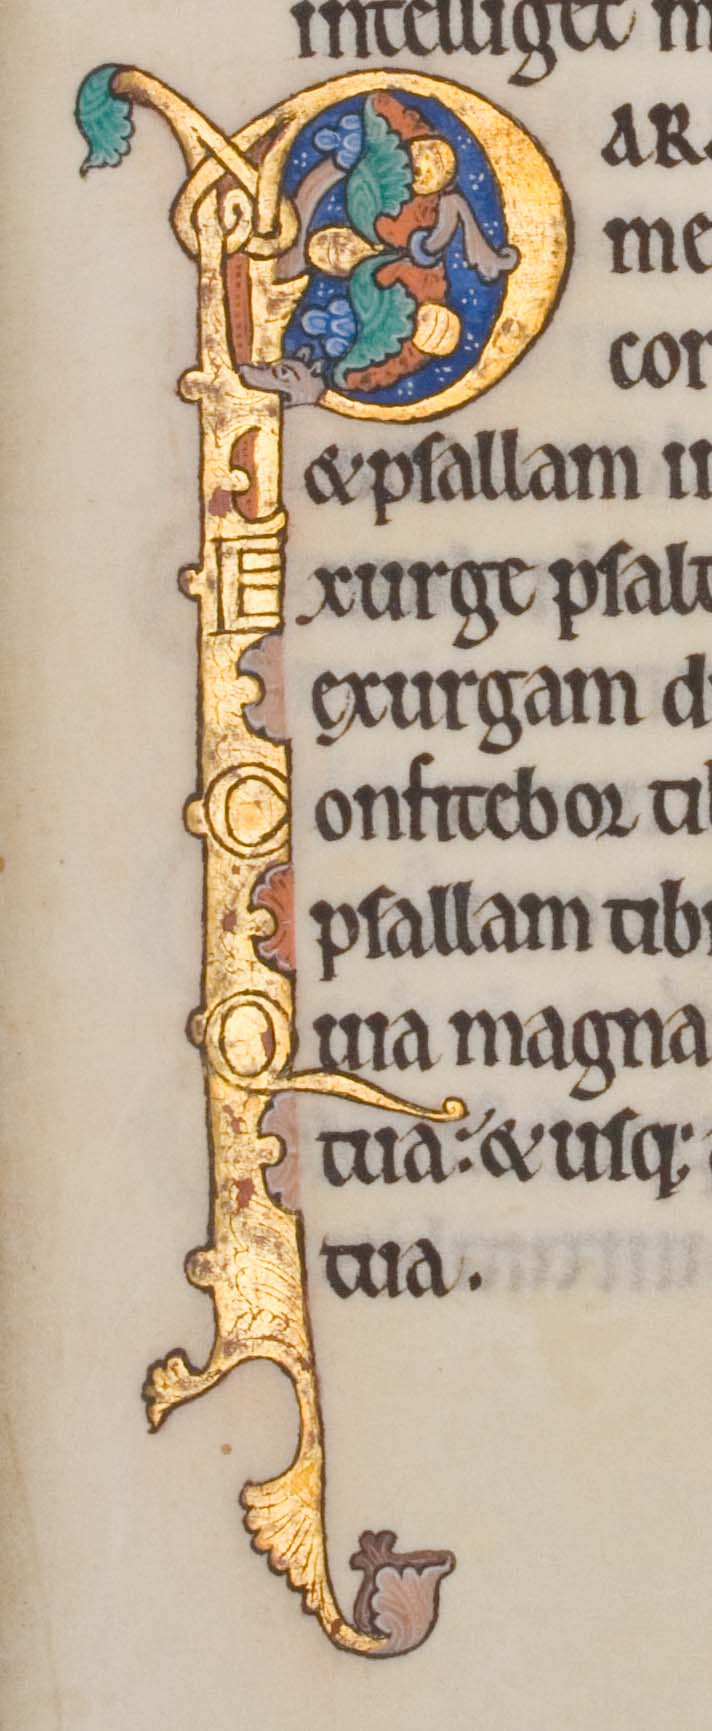 intelliget m
PARA
me
cor
&psallam in
Exurge psalt
exurgam di
Confitebor tib
psallam tibi
Quia magna
tua: & usq;
tua.